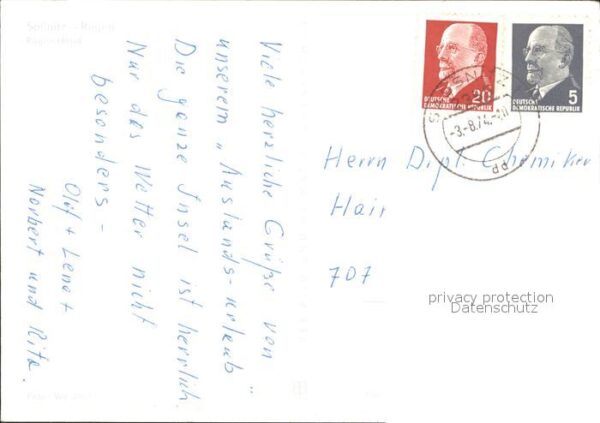 Saßnitz - Rügen
Viele herzliche Grüße von
unserem „Auslands-urlaub“
Die ganze Insel ist herrlich.
Nur das Wetter nicht
besonders -
Olaf + Lena +
Norbert und Rita.
20
DEUTSCHE
DEMOKRATISCHE REPUBLIK
5
DEUTSCHE
DEMOKRATISCHE REPUBLIK
-3.-8.74
Herrn Dipl. Chemiker
Hair
707
privacy protection
Datenschutz